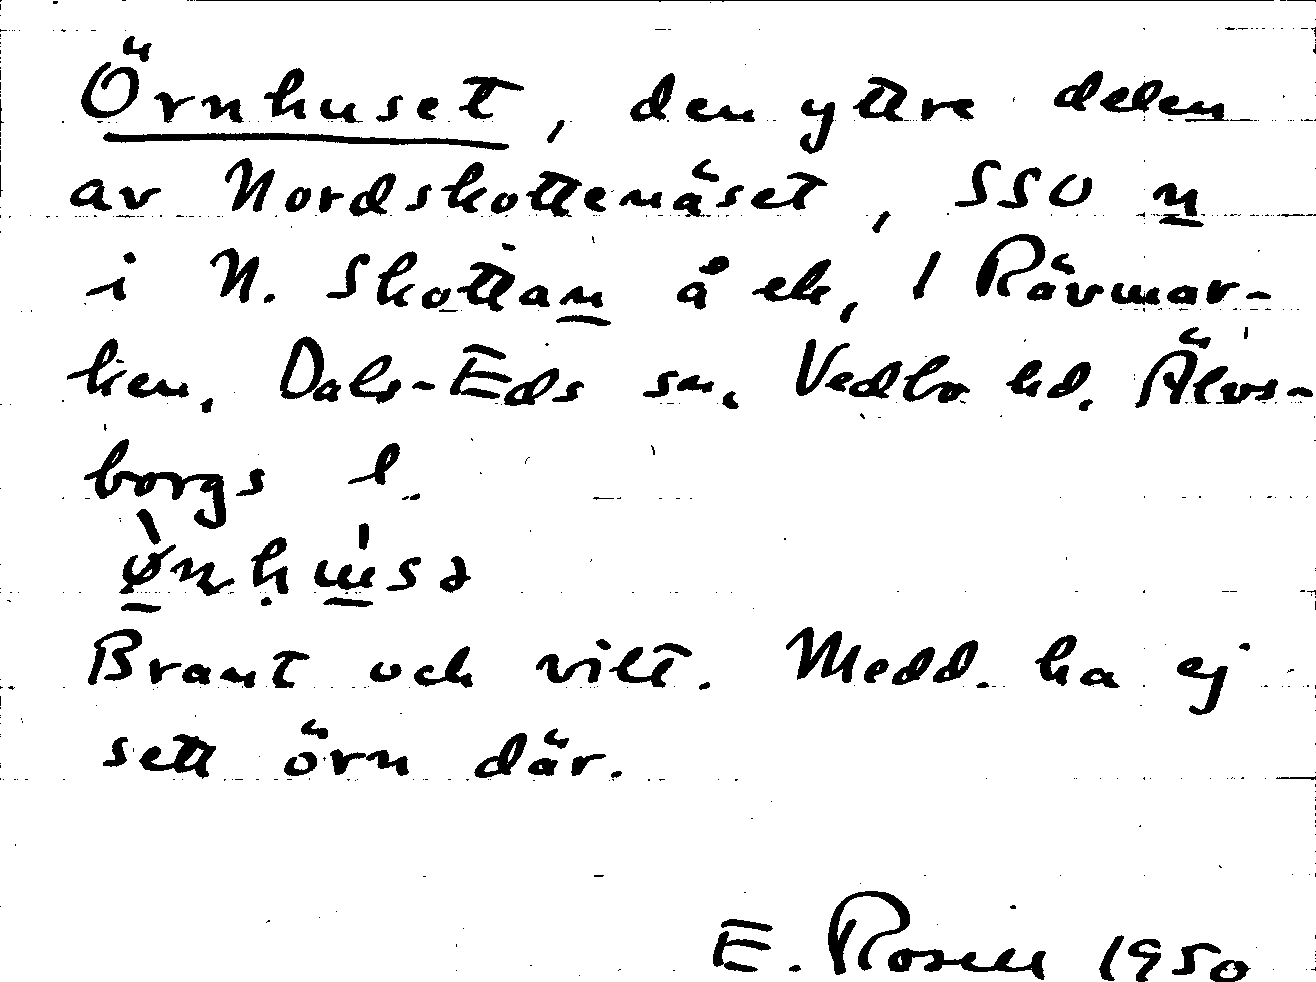 Örnhuset, den yttre delen
av Nordskottenäset, SSO n
i N. Skottan å ek, 1 Rävmar-
ken, Dals-Eds sn, Vedbo hd. Älvs-
borgs l.
Brant och vilt. Medd. ha ej
sett örn där.
E. Rosell 1950